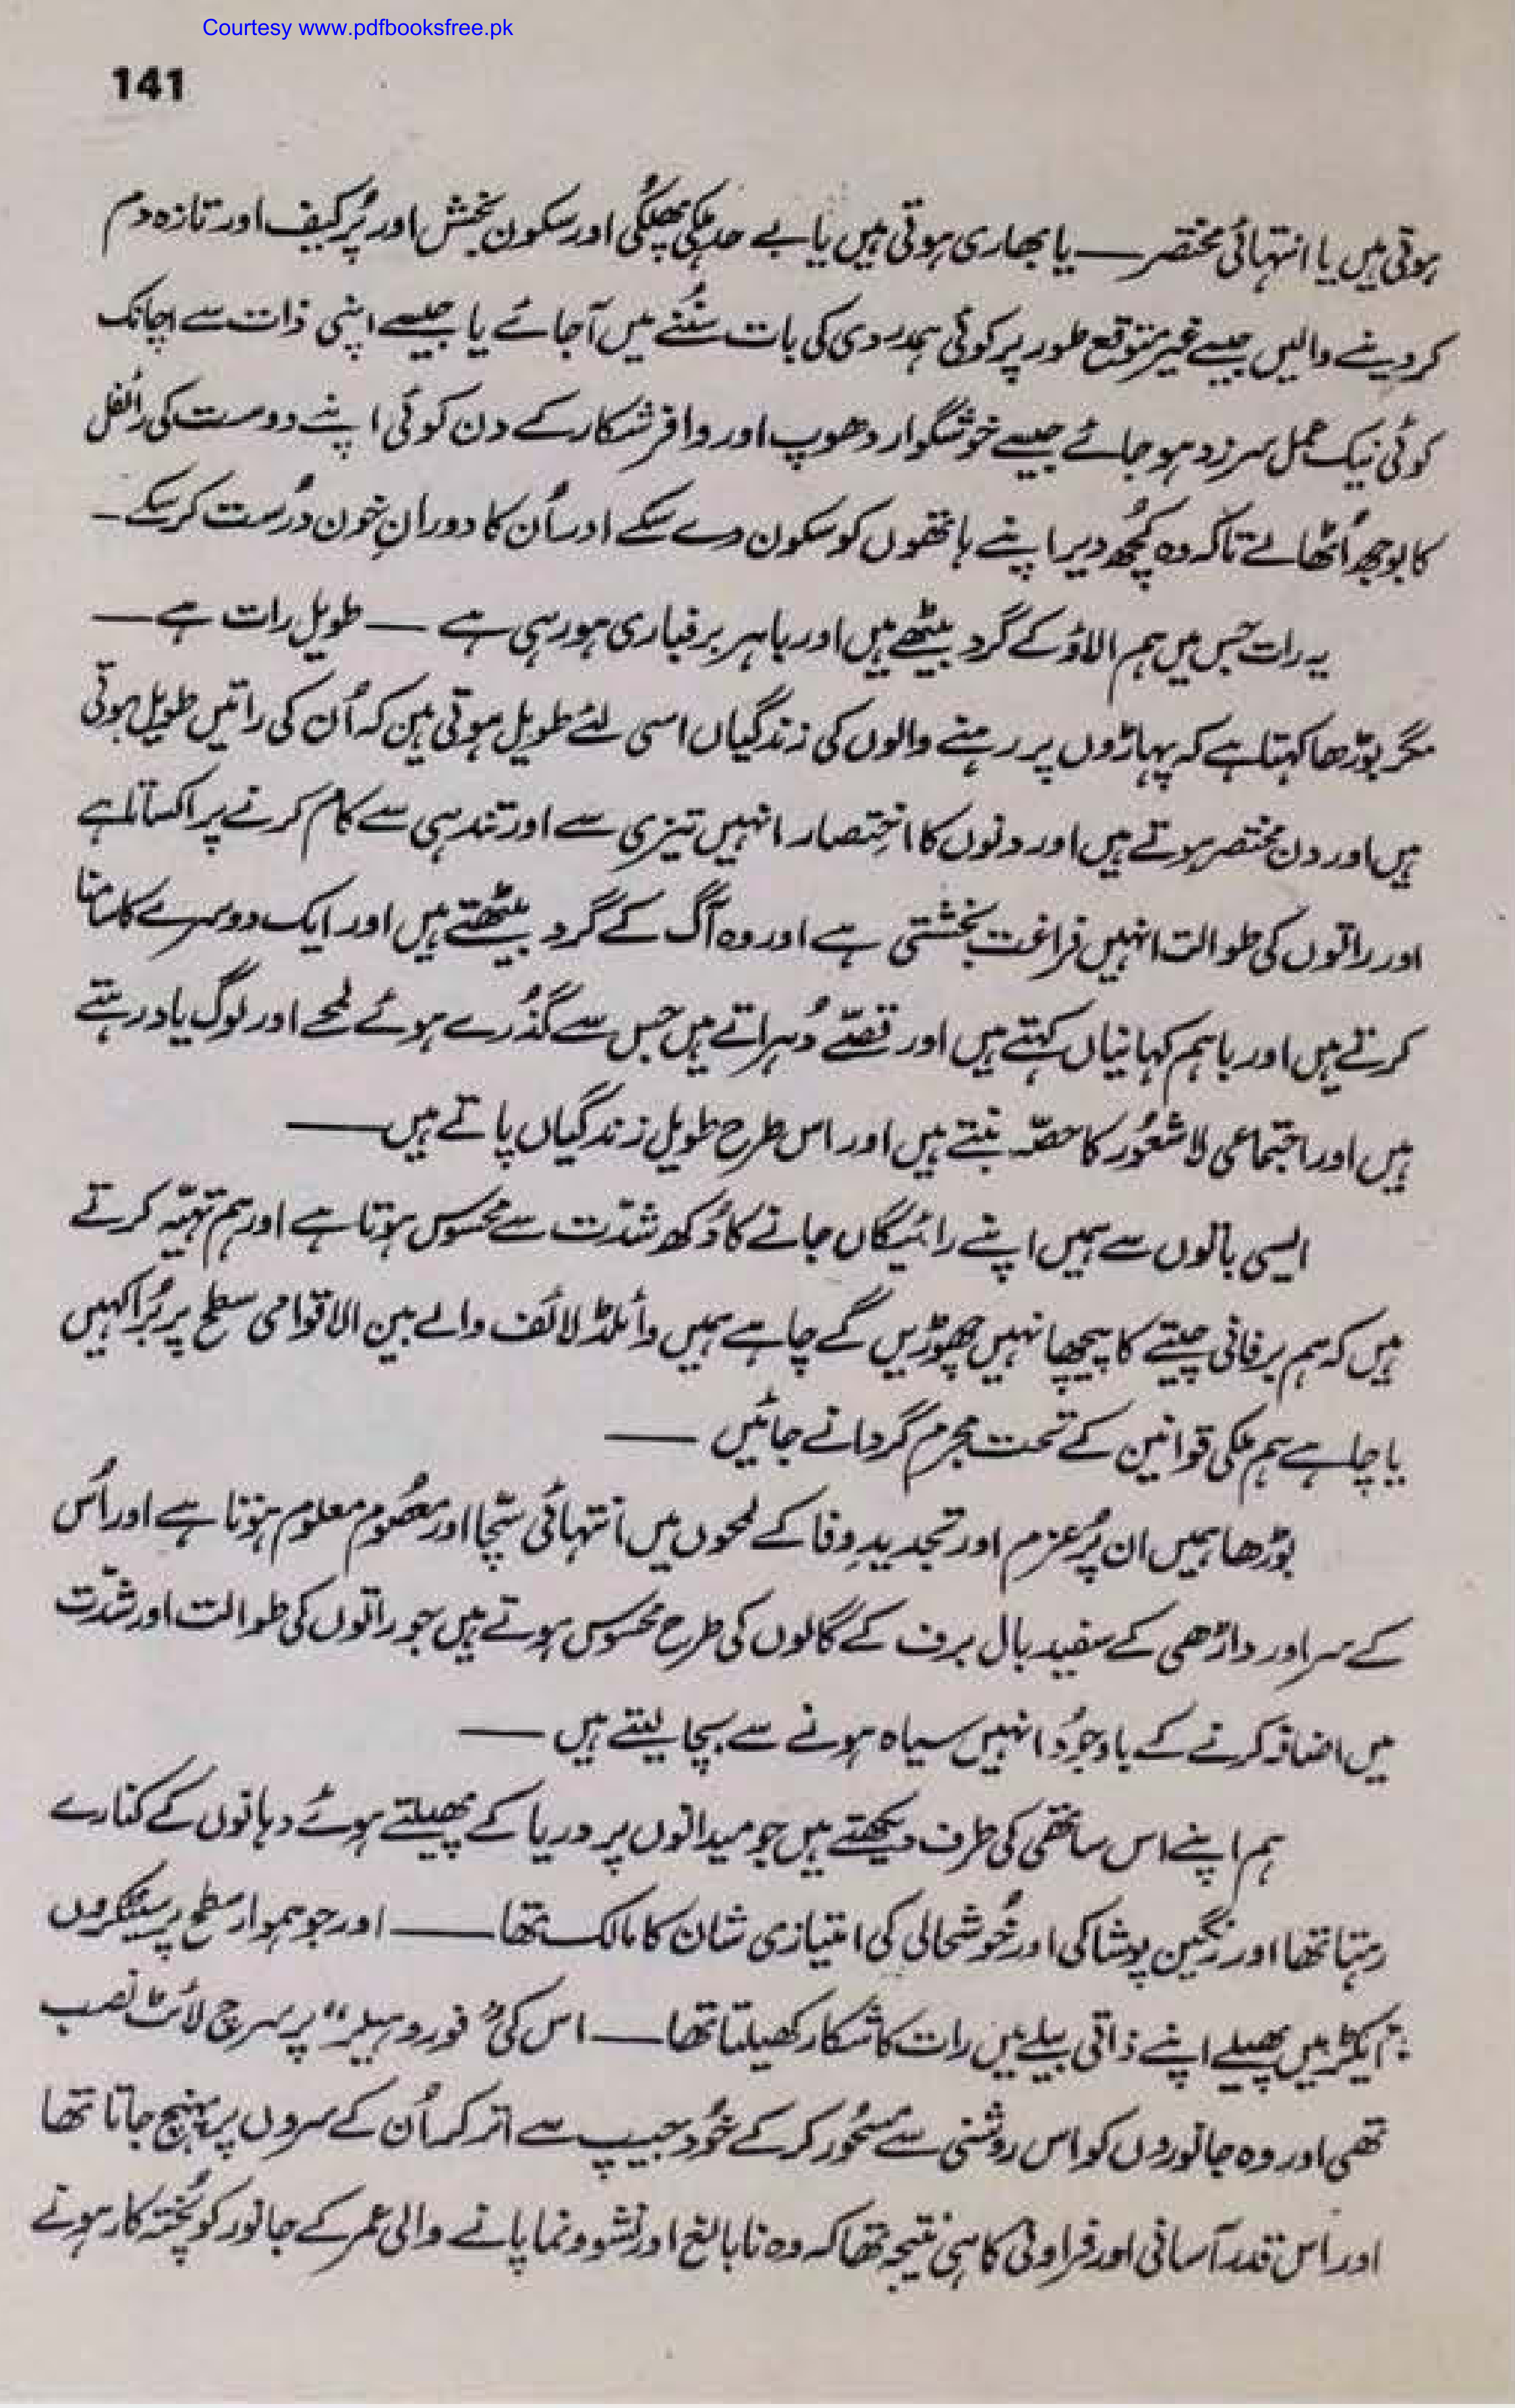 Courtesy www.pdfbooksfree.pk
141
ہوتی ہیں یا انتہائی مختصر — یا بھاری ہوتی ہیں یا بے حد ہلکی پھلکی اور سکون بخش اور پُر کیف اور تازہ دم
کر دینے والیں جیسے غیر متوقع طور پر کوئی ہمدردی کی بات سُننے میں آ جائے یا جیسے اپنی ذات سے اچانک
کوئی نیک عمل سرزد ہو جائے جیسے خوشگوار دھوپ اور وافر شکار کے دن کوئی اپنے دوست کی رائفل
کا بوجھ اُٹھالے تاکہ وہ کچُھ دیر اپنے ہاتھوں کو سکون دے سکے اور اُن کا دورانِ خون دُرست کر سکے ـ
یہ رات جس میں ہم الاؤ کے گرد بیٹھے ہیں اور باہر برفباری ہو رہی ہے — طویل رات ہے —
مگر بوڑھا کہتا ہے کہ پہاڑوں پر رہنے والوں کی زندگیاں اسی لئے طویل ہوتی ہیں کہ اُن کی راتیں طویل ہوتی
ہیں اور دن مختصر ہوتے ہیں اور دنوں کا اختصار انہیں تیزی سے اور تندہی سے کام کرنے پر اکساتا ہے
اور راتوں کی طوالت انہیں فراغت بخشتی ہے اور وہ آگ کے گرد بیٹھتے ہیں اور ایک دوسرے کا سامنا
کرتے ہیں اور باہم کہانیاں کہتے ہیں اور قصّے دُہراتے ہیں جس سے گذُرے ہوئے لمحے اور لوگ یاد رہتے
ہیں اور اجتماعی لاشعُور کا حصّہ بنتے ہیں اور اس طرح طویل زندگیاں پاتے ہیں —
ایسی باتوں سے ہمیں اپنے رائیگاں جانے کا دُکھ شدّت سے محسوس ہوتا ہے اور ہم تہیّہ کرتے
ہیں کہ ہم برفانی چیتے کا پیچھا نہیں چھوڑیں گے چاہے ہمیں وائلڈ لائف والے بین الاقوامی سطح پر بُرا کہیں
یا چاہے ہم ملکی قوانین کے تحت مجرم گردانے جائیں —
بوڑھا ہمیں ان پُر عزم اور تجدیدِ وفا کے لمحوں میں انتہائی سچّا اور معصُوم معلوم ہوتا ہے اور اُس
کے سر اور داڑھی کے سفید بال برف کے گالوں کی طرح محسوس ہوتے ہیں جو راتوں کی طوالت اور شدّت
میں اضافہ کرنے کے باوجوُد انہیں سیاہ ہونے سے بچا لیتے ہیں —
ہم اپنے اس ساتھی کی طرف دیکھتے ہیں جو میدانوں پر دریا کے پھیلتے ہوئے دہانوں کے کنارے
رہتا تھا اور رنگین پوشاکی اور خُوشحالی کی امتیازی شان کا مالک تھا — اور جو ہموار سطح پر سینکڑوں
ایکڑ میں پھیلے اپنے ذاتی بیلے میں رات کا شکار کھیلتا تھا — اس کی "فور وہیلر" پر سرچ لائٹ نصب
تھی اور وہ جانوروں کو اس روشنی سے مسحُور کر کے خُود جیپ سے اتر کر اُن کے سروں پر پہنچ جاتا تھا
اور اس قدر آسانی اور فراوانی کا ہی نتیجہ تھا کہ وہ نابالغ اور نشوونما پانے والی عمر کے جانور کو پُختہ کار ہونے